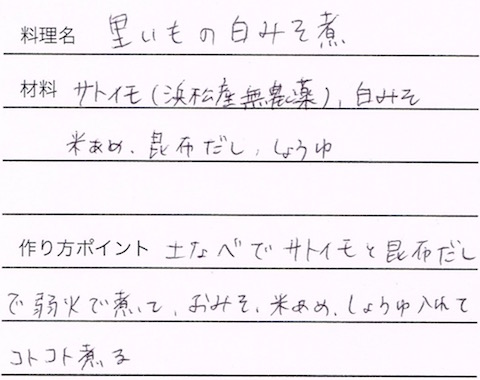 料理名 里いもの白みそ煮
材料 サトイモ(浜松産無農薬)、白みそ
米あめ、昆布だし、しょうゆ
作り方ポイント 土なべでサトイモと昆布だし
で弱火で煮て、おみそ、米あめ、しょうゆ入れて
コトコト煮る